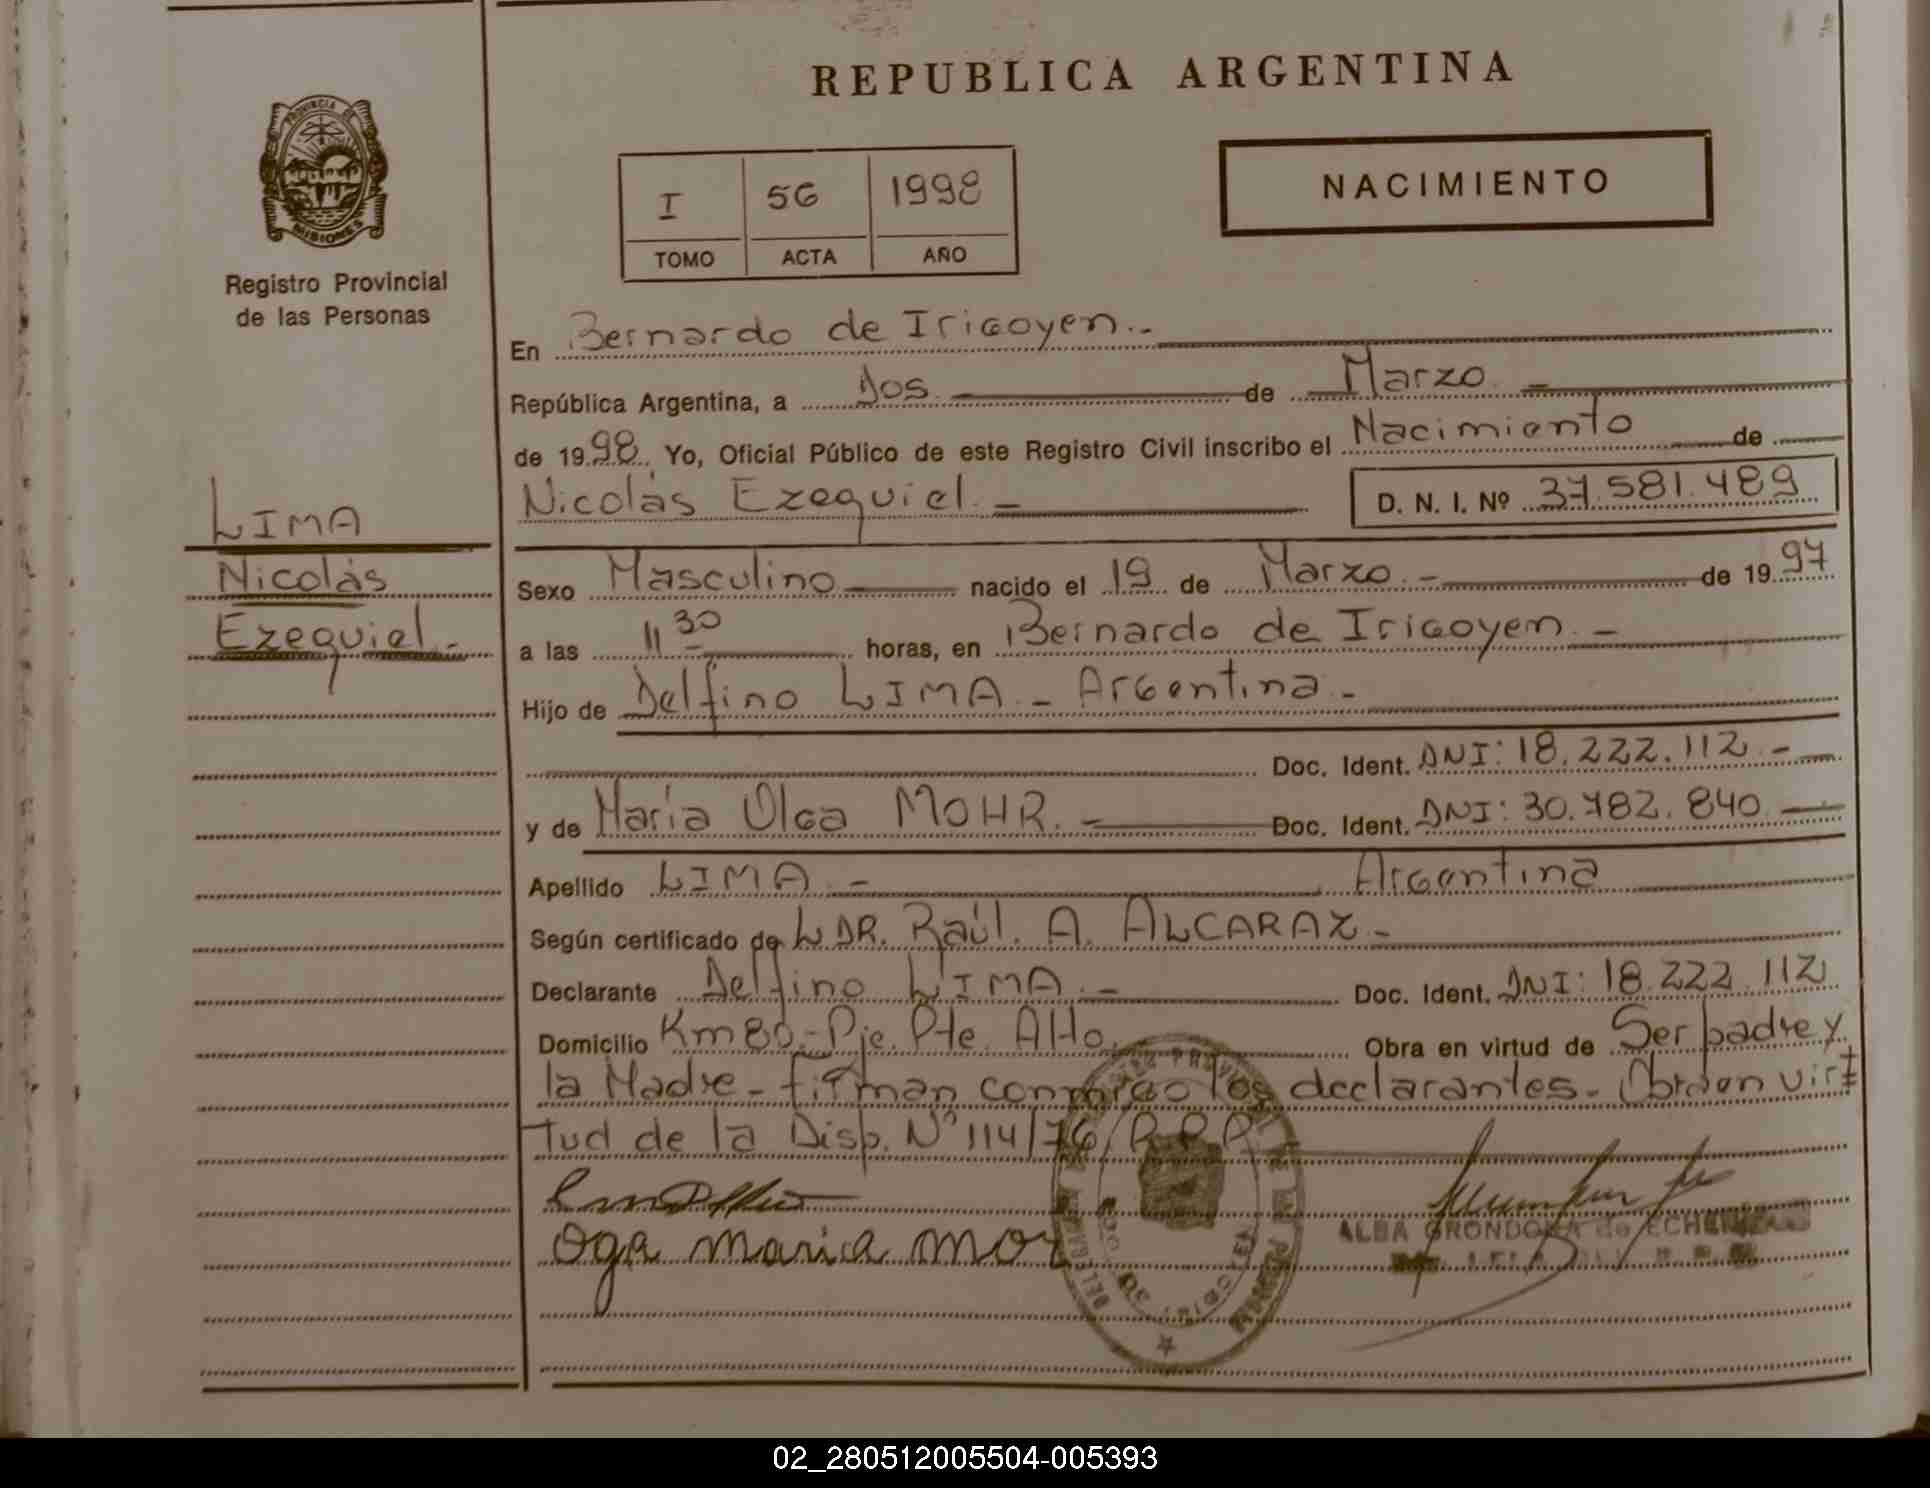 REPUBLICA ARGENTINA
PROVINCIA DE
MISIONES
Registro Provincial
de las Personas
I 56 1998
TOMO ACTA AÑO
NACIMIENTO
En Bernardo de Irigoyen.-
República Argentina, a Dos - de Marzo. -
de 1998. Yo, Oficial Público de este Registro Civil inscribo el Nacimiento de
Nicolás Ezequiel. - D. N. I. Nº 37.581.489
LIMA
Nicolás
Ezequiel.-
Sexo Masculino nacido el 19 de Marzo. - de 1997
a las 11 30 horas, en Bernardo de Irigoyen. -
Hijo de Delfino LIMA - Argentina -
Doc. Ident. DNI: 18.222.112 -
y de María Olga MOHR. - Doc. Ident. DNI: 30.782.840
Apellido LIMA. - Argentina
Según certificado de L DR. Raúl. A. ALCARAZ -
Declarante Delfino LIMA. - Doc. Ident. DNI: 18.222.112
Domicilio Km80.-Pje. Pte. Alto. Obra en virtud de Ser padre y
la Madre - firman conmigo los declarantes - Orden vir
tud de la Disp. Nº 114/76, R.P.P.
Oga maria mor
ALBA GRONDONA de
02_280512005504-005393